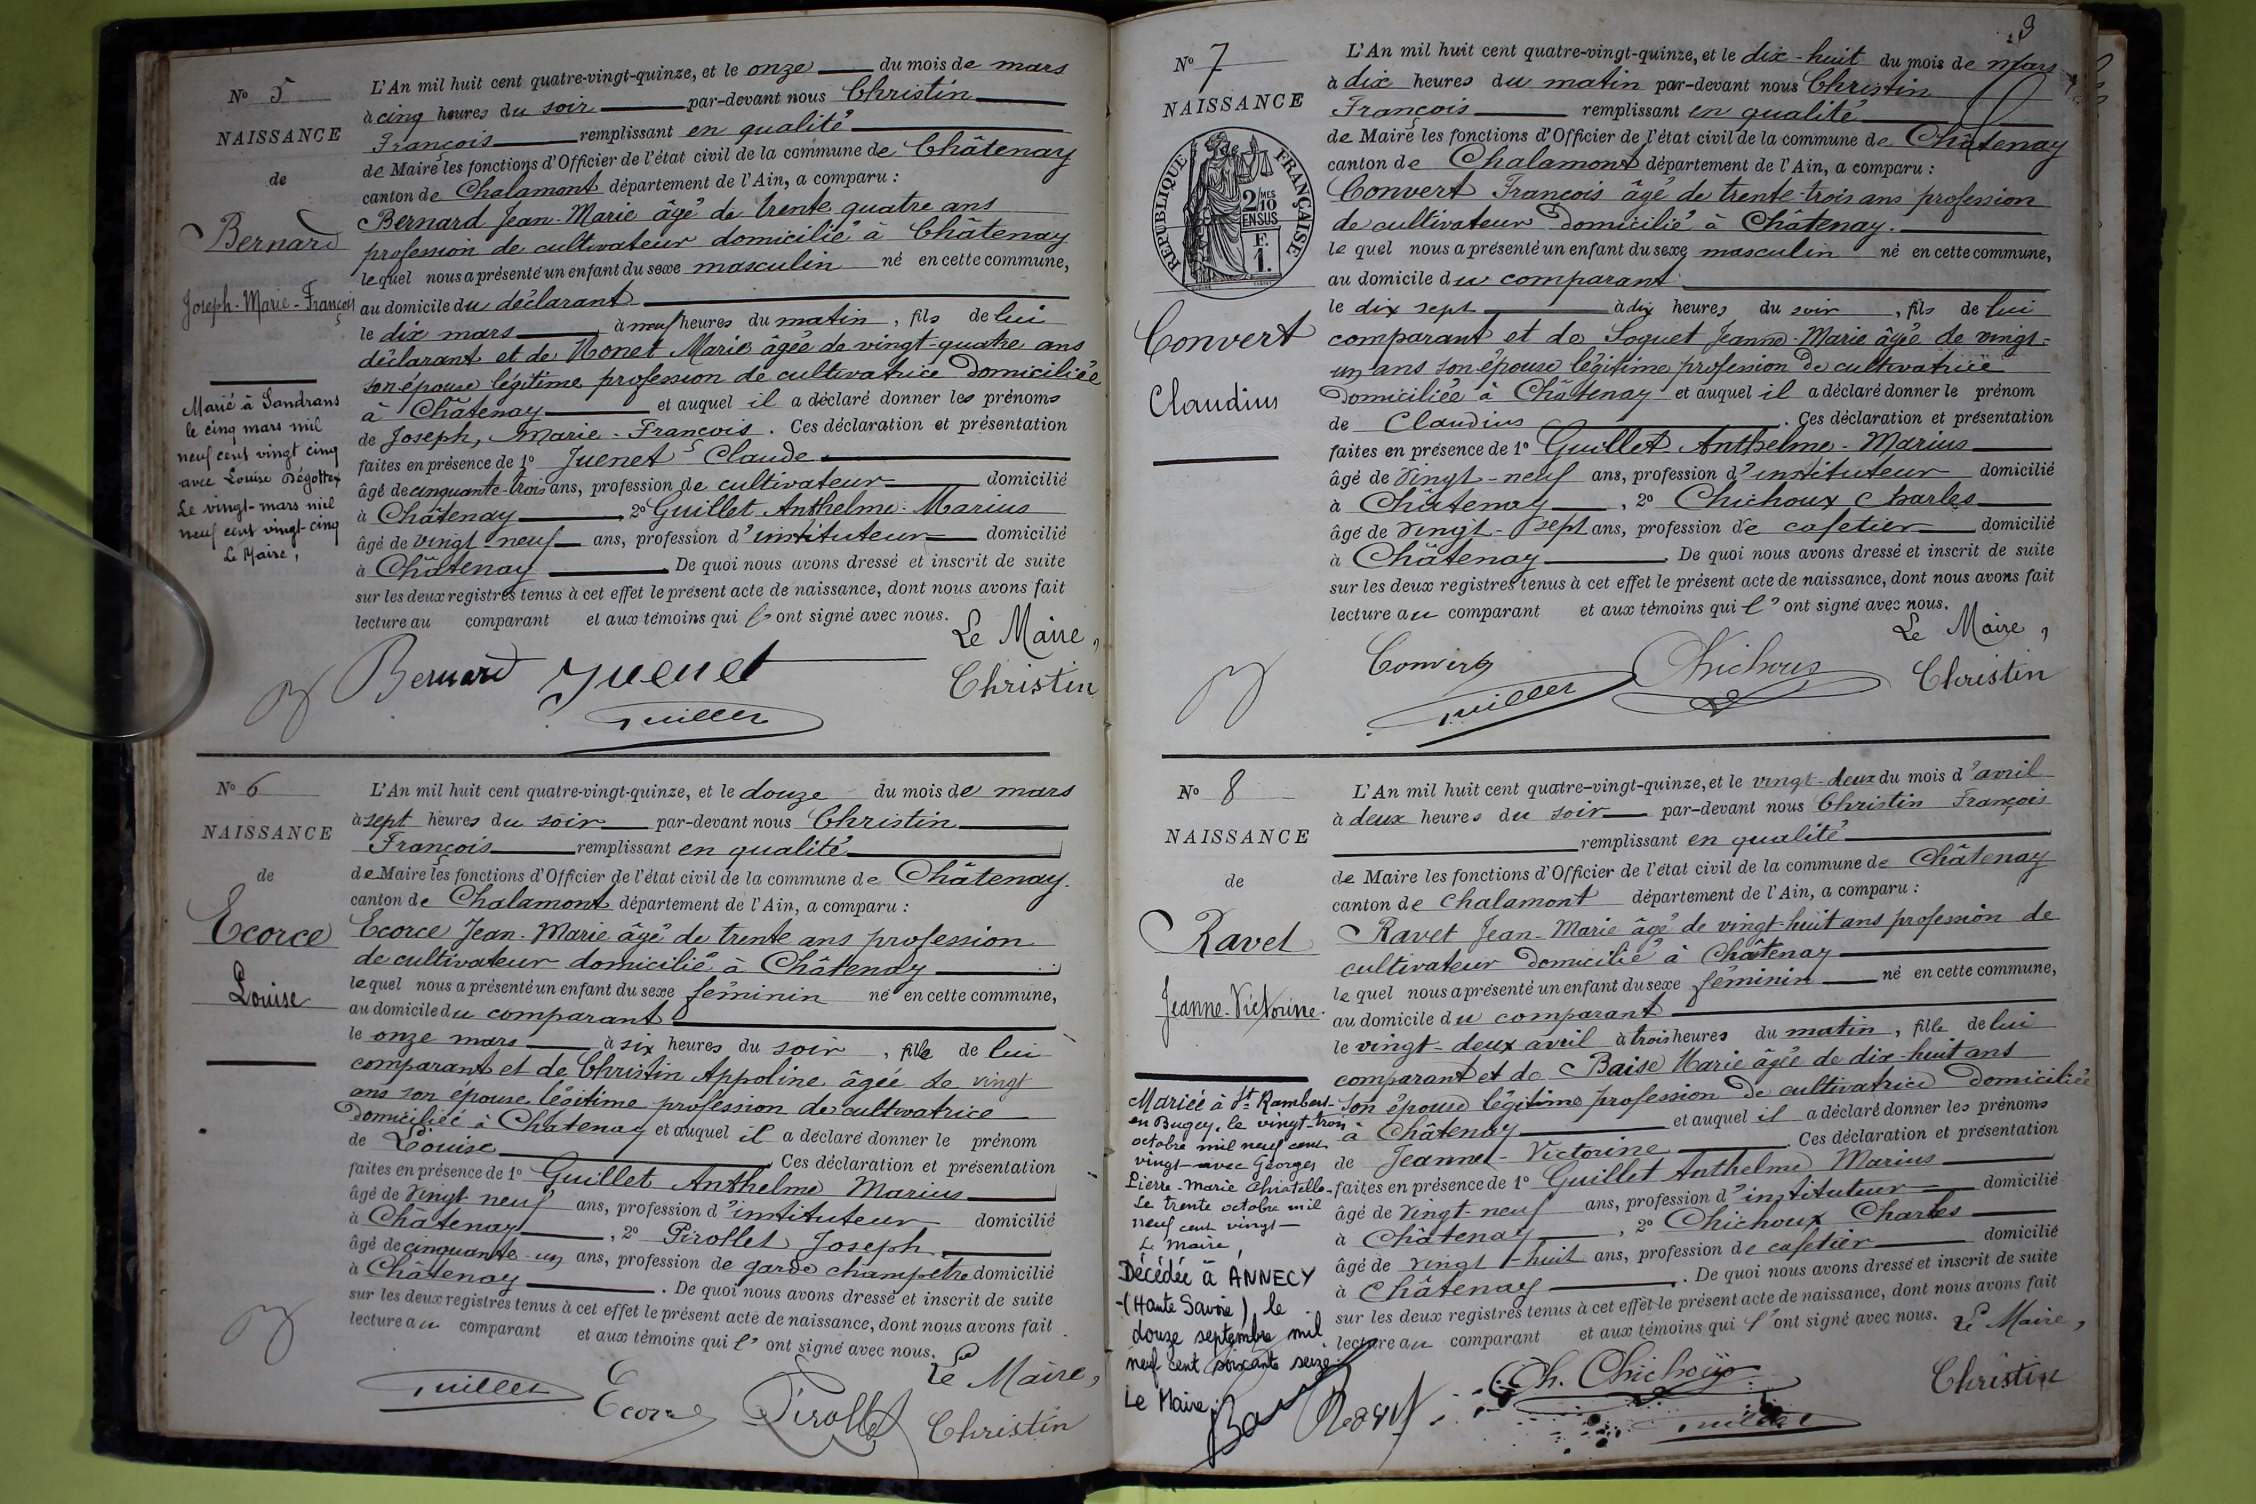 N° 5
NAISSANCE
de
Bernard
Joseph-Marie-François
Marié à Sandrans
le cinq mars mil
neuf cent vingt cinq
avec Louise Dégottex
Le vingt-mars mil
neuf cent vingt-cinq
Le Maire,
L'An mil huit cent quatre-vingt-quinze, et le onze du mois de mars
à cinq heures du soir par-devant nous Christin
François remplissant en qualité
de Maire les fonctions d'Officier de l'état civil de la commune de Châtenay
canton de Chalamont département de l'Ain, a comparu :
Bernard Jean-Marie âgé de trente quatre ans
profession de cultivateur domicilié à Châtenay
lequel nous a présenté un enfant du sexe masculin né en cette commune,
au domicile du déclarant
le dix mars à neuf heures du matin, fils de lui
déclarant et de Nonet Marie âgée de vingt-quatre ans
son épouse légitime profession de cultivatrice domiciliée
à Châtenay et auquel il a déclaré donner les prénoms
de Joseph, Marie-François. Ces déclaration et présentation
faites en présence de 1° Juenet Claude
âgé de cinquante-trois ans, profession de cultivateur domicilié
à Châtenay, 2° Guillet Anthelme-Marius
âgé de vingt-neuf ans, profession d'instituteur domicilié
à Châtenay. De quoi nous avons dressé et inscrit de suite
sur les deux registres tenus à cet effet le présent acte de naissance, dont nous avons fait
lecture au comparant et aux témoins qui l'ont signé avec nous.
Le Maire,
Bernard Juenet Christin
Guillet
N° 6
NAISSANCE
de
Ecorce
Louise
L'An mil huit cent quatre-vingt-quinze, et le douze du mois de mars
à sept heures du soir par-devant nous Christin
François remplissant en qualité
de Maire les fonctions d'Officier de l'état civil de la commune de Châtenay.
canton de Chalamont département de l'Ain, a comparu :
Ecorce Jean-Marie âgé de trente ans profession
de cultivateur domicilié à Châtenay
lequel nous a présenté un enfant du sexe féminin né en cette commune,
au domicile du comparant
le onze mars à six heures du soir, fille de lui
comparant et de Christin Appoline âgée de vingt
ans son épouse légitime profession de cultivatrice
domiciliée à Châtenay et auquel il a déclaré donner le prénom
de Louise Ces déclaration et présentation
faites en présence de 1° Guillet Anthelme Marius
âgé de vingt neuf ans, profession d'instituteur domicilié
à Châtenay, 2° Pirollet Joseph
âgé de cinquante-un ans, profession de garde champêtre domicilié
à Châtenay. De quoi nous avons dressé et inscrit de suite
sur les deux registres tenus à cet effet le présent acte de naissance, dont nous avons fait
lecture au comparant et aux témoins qui l'ont signé avec nous.
Le Maire,
Guillet Ecorce Pirollet Christin
3
N° 7
NAISSANCE
RÉPUBLIQUE FRANÇAISE
2 MES
/10
EN SUS
F.
1.
Convert
Claudius
L'An mil huit cent quatre-vingt-quinze, et le dix-huit du mois de mars
à dix heures du matin par-devant nous Christin
François remplissant en qualité
de Maire les fonctions d'Officier de l'état civil de la commune de Châtenay
canton de Chalamont département de l'Ain, a comparu :
Convert François âgé de trente-trois ans profession
de cultivateur domicilié à Châtenay.
lequel nous a présenté un enfant du sexe masculin né en cette commune,
au domicile du comparant
le dix sept à dix heures du soir, fils de lui
comparant et de Soquet Jeanne-Marie âgée de vingt-
un ans son épouse légitime profession de cultivatrice
domiciliée à Châtenay et auquel il a déclaré donner le prénom
de Claudius. Ces déclaration et présentation
faites en présence de 1° Guillet Anthelme-Marius
âgé de vingt-neuf ans, profession d'instituteur domicilié
à Châtenay, 2° Chichoux Charles
âgé de vingt-sept ans, profession de cafetier domicilié
à Châtenay. De quoi nous avons dressé et inscrit de suite
sur les deux registres tenus à cet effet le présent acte de naissance, dont nous avons fait
lecture au comparant et aux témoins qui l'ont signé avec nous.
Le Maire,
Convert Chichoux Christin
Guillet
N° 8
NAISSANCE
de
Ravet
Jeanne-Victorine.
Mariée à St Rambert-
en Bugey, le vingt-trois
octobre mil neuf cent
vingt avec Georges
Pierre-Marie
Le trente octobre mil
neuf cent vingt
Le Maire,
Décédée à ANNECY
(Haute Savoie), le
douze septembre mil
neuf cent soixante seize.
Le Maire
L'An mil huit cent quatre-vingt-quinze, et le vingt-deux du mois d'avril
à deux heures du soir par-devant nous Christin François
remplissant en qualité
de Maire les fonctions d'Officier de l'état civil de la commune de Châtenay
canton de Chalamont département de l'Ain, a comparu :
Ravet Jean-Marie âgé de vingt-huit ans profession de
cultivateur domicilié à Châtenay
lequel nous a présenté un enfant du sexe féminin né en cette commune,
au domicile du comparant
le vingt-deux avril à trois heures du matin, fille de lui
comparant et de Baise Marie âgée de dix-huit ans
son épouse légitime profession de cultivatrice domiciliée
à Châtenay et auquel il a déclaré donner les prénoms
de Jeanne-Victorine. Ces déclaration et présentation
faites en présence de 1° Guillet Anthelme Marius
âgé de vingt neuf ans, profession d'instituteur domicilié
à Châtenay, 2° Chichoux Charles
âgé de vingt-huit ans, profession de cafetier domicilié
à Châtenay. De quoi nous avons dressé et inscrit de suite
sur les deux registres tenus à cet effet le présent acte de naissance, dont nous avons fait
lecture au comparant et aux témoins qui l'ont signé avec nous. Le Maire,
Ravet Ch. Chichoux Christin
Guillet